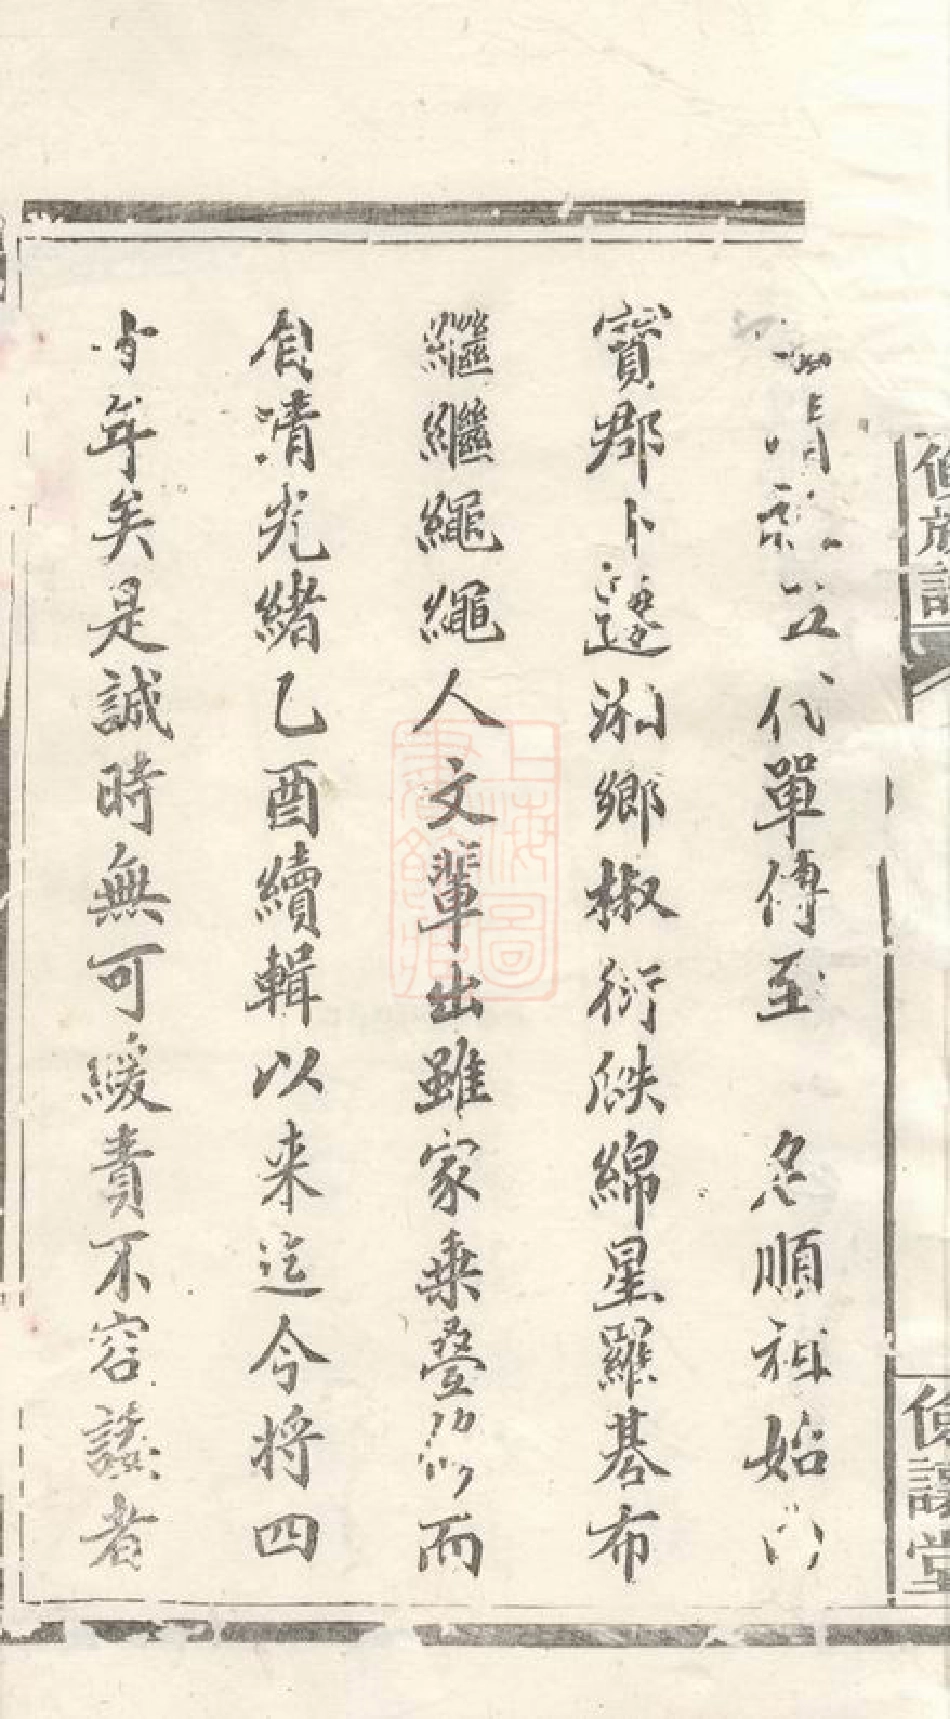 代單傳至 名順祖始
寶郡卜遷湘鄉椒衍瓞綿星羅棊布
繼繼繩繩人文輩出雖家乘疊而
自清光緒乙酉續輯以来迄今将四
十年矣是誠時無可緩責不容諉者
上海圖書館藏